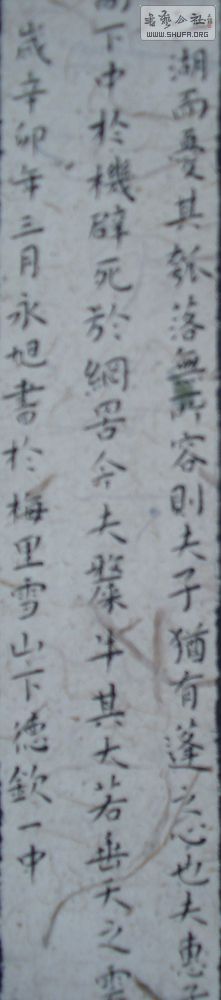 書藝公社
WWW.SHUFA.ORG
湖而憂其瓠落無所容則夫子猶有蓬之心也夫惠子
下中於機辟死於網罟今夫斄牛其大若垂天之雲
歲辛卯年三月永旭書於梅里雪山下德欽一中